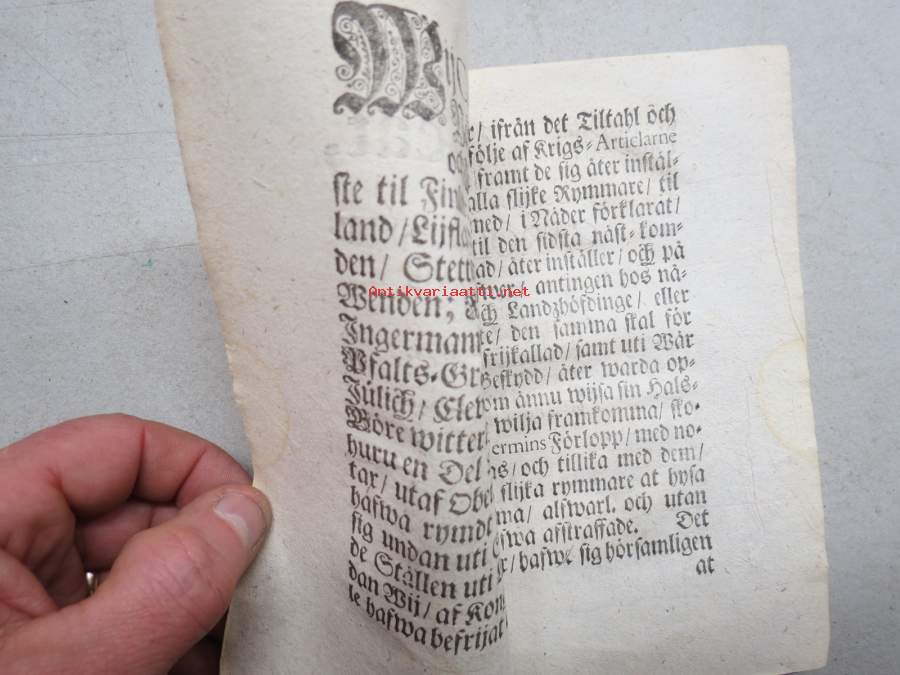 ste til Fin
land / Lijfla
den / Stett
Wenden;
Ingerman
Pfalts-Gr
Jülich / Clev
Göre witter
huru en Del
tar / utaf Obe
hafwa rymdt
sig undan uti
de Ställen uti
dan Wij / af Kon
le hafwa befrijat
r / ifrån det Tiltahl och
följe af Krigs-Articlarne
framt de sig åter instäl-
alla slijke Rymmare / til
med / i Nåder förklarat /
til den sidsta näst-kom-
ad / åter inställer / och på
antingen hos nå-
och Landzhöfdinge / eller
e / den samma skal för
frijkallad / samt uti Wår
Beskydd / åter warda op-
om ännu wijsa sin Hals-
wilja framkomma / sko-
ermins Förlopp / med no-
hs / och tillika med dem /
slijka rymmare at hysa
ma / alfwarl. och utan
efwa afstraffade. Det
r / hafwe sig hörsamligen
at
Antikvariaatti.net